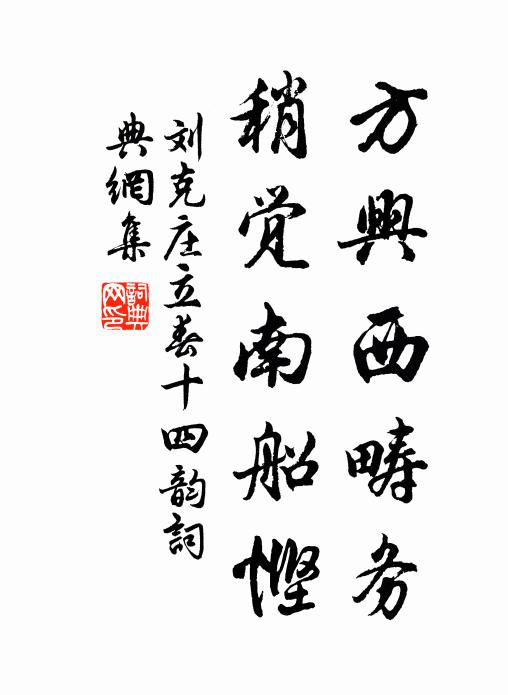 方興西畴务
稍觉南船悭
刘克庄立春十四韵詞
典網集
詞典网印